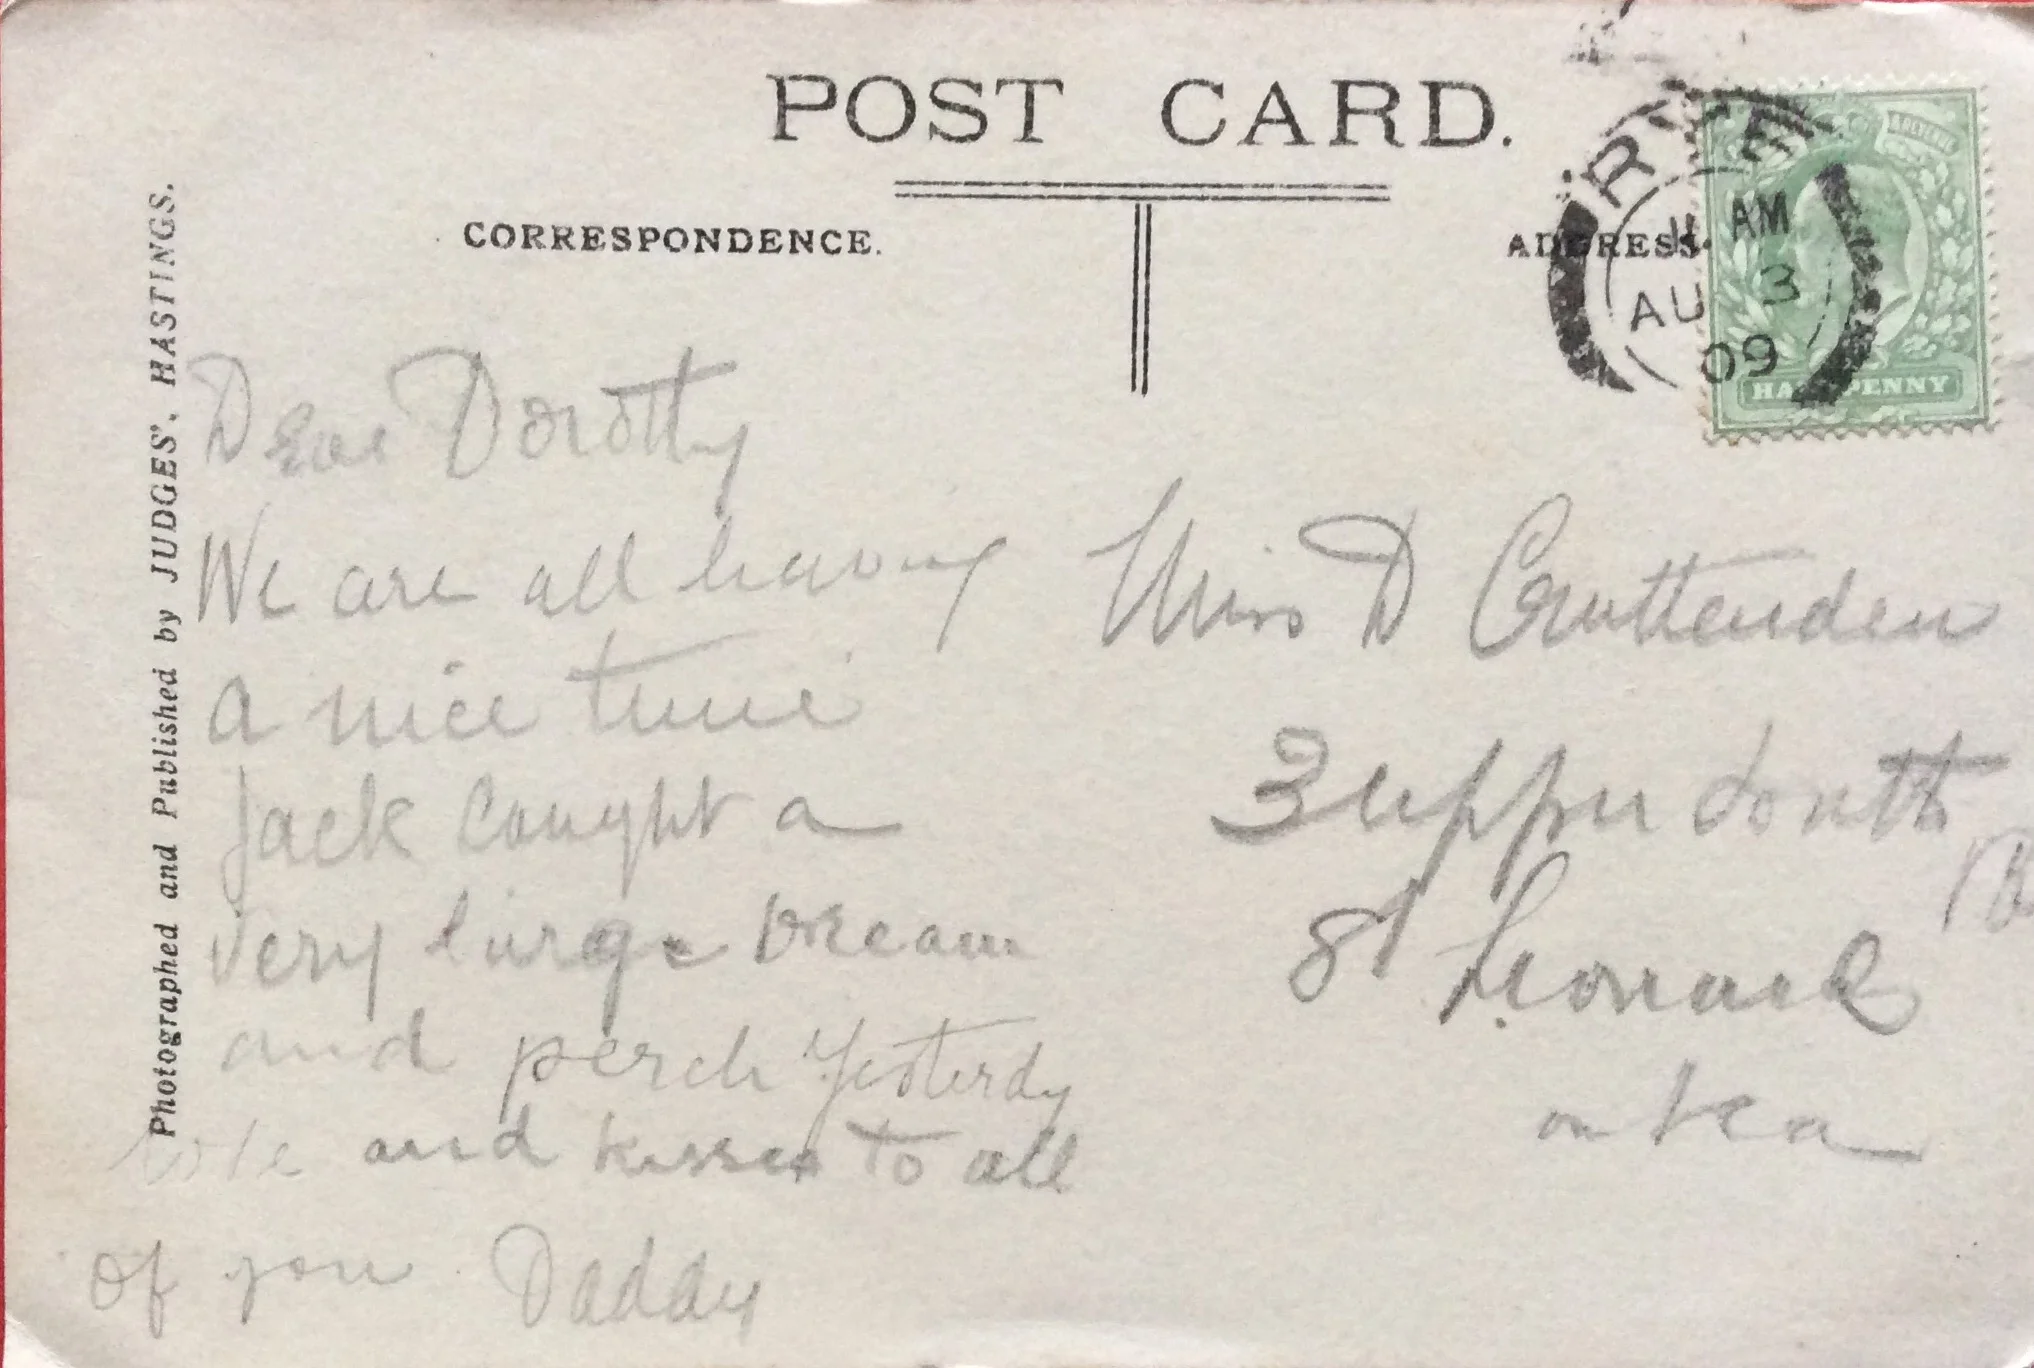 POST CARD.
CORRESPONDENCE.
ADDRESS.
RYE
11 AM
AU 3
09
HALFPENNY
Photographed and Published by JUDGES', HASTINGS.
Dear Dorothy
We are all having
a nice time
Jack caught a
very large bream
and perch Yesterdy
love and kisses to all
of you Daddy
Miss D Cruttenden
3 Upper South
St Leonard
on Sea